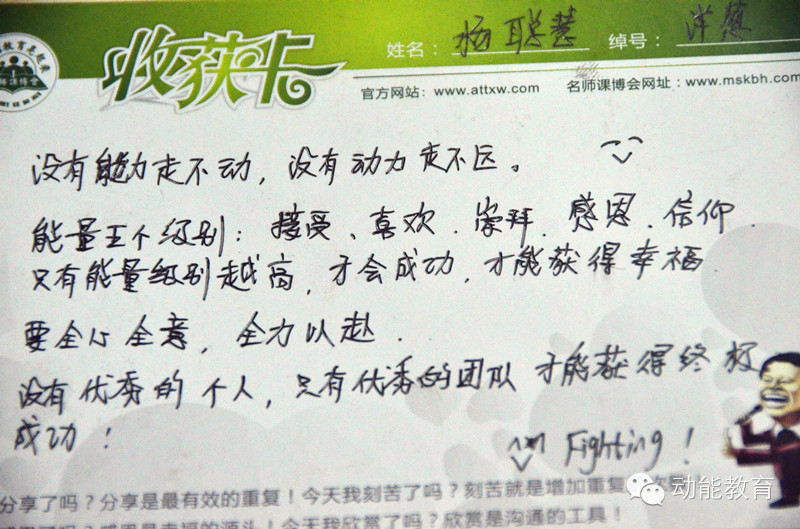 收获卡
姓名：杨聪慧 绰号：洋葱
官方网站：www.attxw.com 名师课博会网址：www.mskbh.com
没有能力走不动，没有动力走不远。
能量五个级别：接受、喜欢、崇拜、感恩、信仰.
只有能量级别越高，才会成功，才能获得幸福.
要全心全意，全力以赴.
没有优秀的个人，只有优秀的团队才能获得终极
成功！
Fighting！
分享了吗？分享是最有效的重复！今天我刻苦了吗？刻苦就是增加重复
感恩是幸福的源头！今天我欣赏了吗？欣赏是沟通的工具！
动能教育